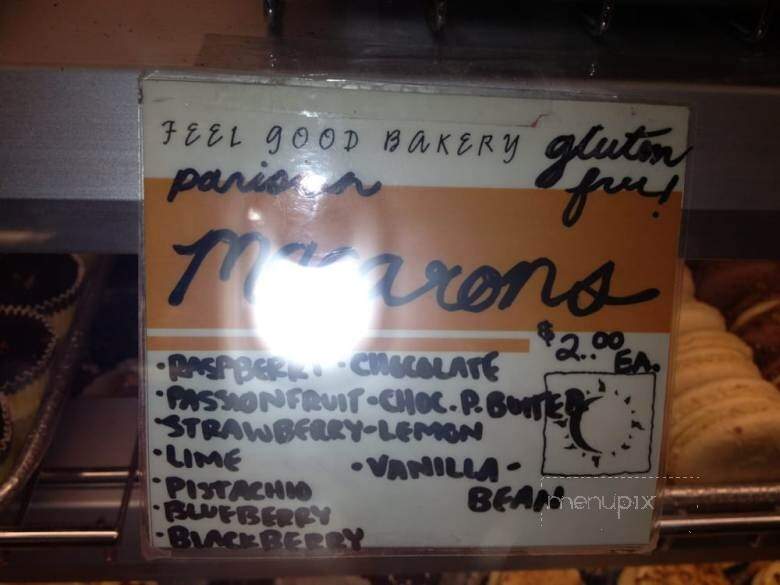 FEEL GOOD BAKERY gluten
parisian free!
Macarons
$2.00
EA.
·RASPBERRY ·CHOCOLATE
·PASSIONFRUIT-CHOC. P. BUTTER
·STRAWBERRY-LEMON
·LIME ·VANILLA-
·PISTACHIO BEAN
·BLUEBERRY
·BLACKBERRY
menupix